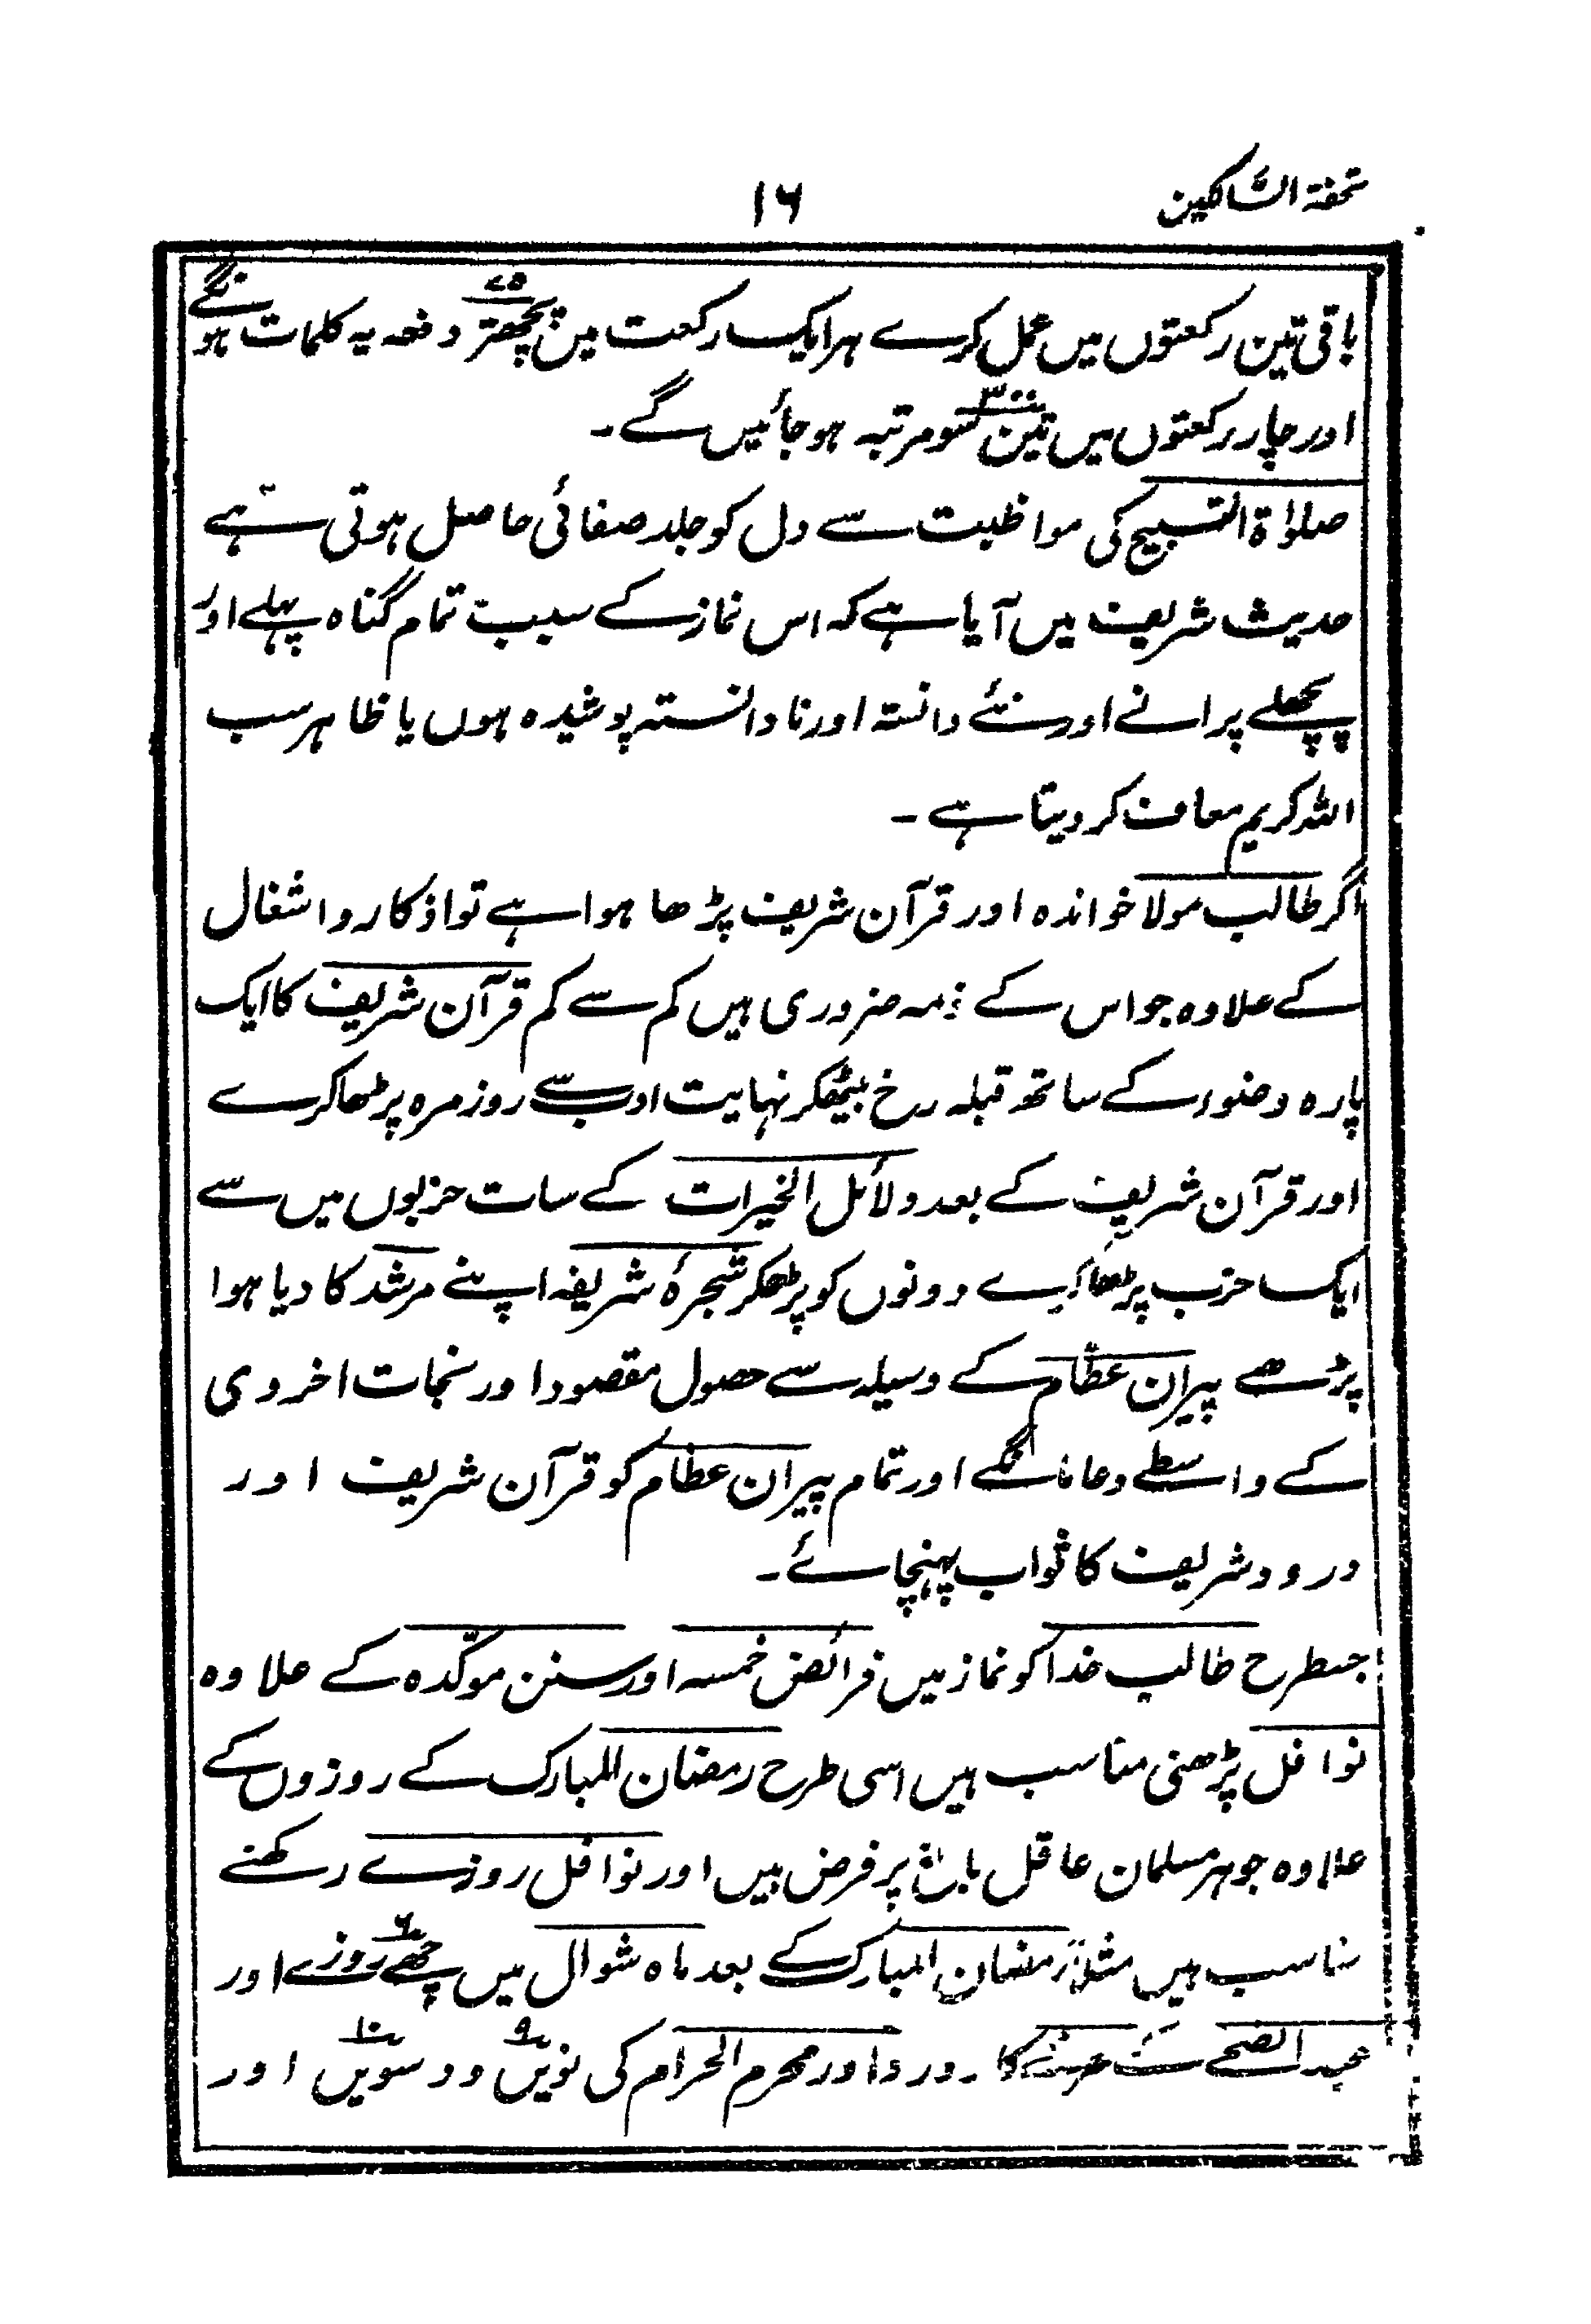 تحفۃ السّالکین
۱۶
باقی تین رکعتوں میں عمل کرے ہر ایک رکعت میں پچھتر ۷۵ دفعہ یہ کلمات ہونگے
اور چار رکعتوں میں تین سو ۳۰۰ مرتبہ ہو جائیں گے۔
صلوٰۃ التسبیح کی مواظبت سے دل کو جلد صفائی حاصل ہوتی ہے
حدیث شریف میں آیا ہے کہ اس نماز کے سبب تمام گناہ پہلے اور
پچھلے پرانے اور نئے دانستہ اور نادانستہ پوشیدہ ہوں یا ظاہر سب
اللہ کریم معاف کر دیتا ہے۔
اگر طالب مولا خواندہ اور قرآن شریف پڑھا ہوا ہے تو اذکار و اشغال
کے علاوہ جو اس کے ذمہ ضروری ہیں کم سے کم قرآن شریف کا ایک
پارہ وضوء کے ساتھ قبلہ رخ بیٹھکر نہایت ادب سے روز مرہ پڑھا کرے
اور قرآن شریف کے بعد دلائل الخیرات کے سات حزبوں میں سے
ایک حزب پڑھا کرے دونوں کو پڑھکر شجرۂ شریفہ اپنے مرشد کا دیا ہوا
پڑھے پیران عظّام کے وسیلہ سے حصول مقصود اور نجات اخروی
کے واسطے دعا مانگے اور تمام پیران عظام کو قرآن شریف اور
درود شریف کا ثواب پہنچائے۔
جسطرح طالب خدا کو نماز میں فرائض خمسہ اور سنن موکّدہ کے علاوہ
نوافل پڑھنی مناسب ہیں اسی طرح رمضان المبارک کے روزوں کے
علاوہ جو ہر مسلمان عاقل بالغ پر فرض ہیں اور نوافل روزے رکھنے
مناسب ہیں مثلاً رمضان المبارک کے بعد ماہ شوال میں چھے ۶ روزے اور
عید الضحےٰ عرفے کا روزہ اور محرم الحرام کی نویں ۹ و دسویں ۱۰ اور